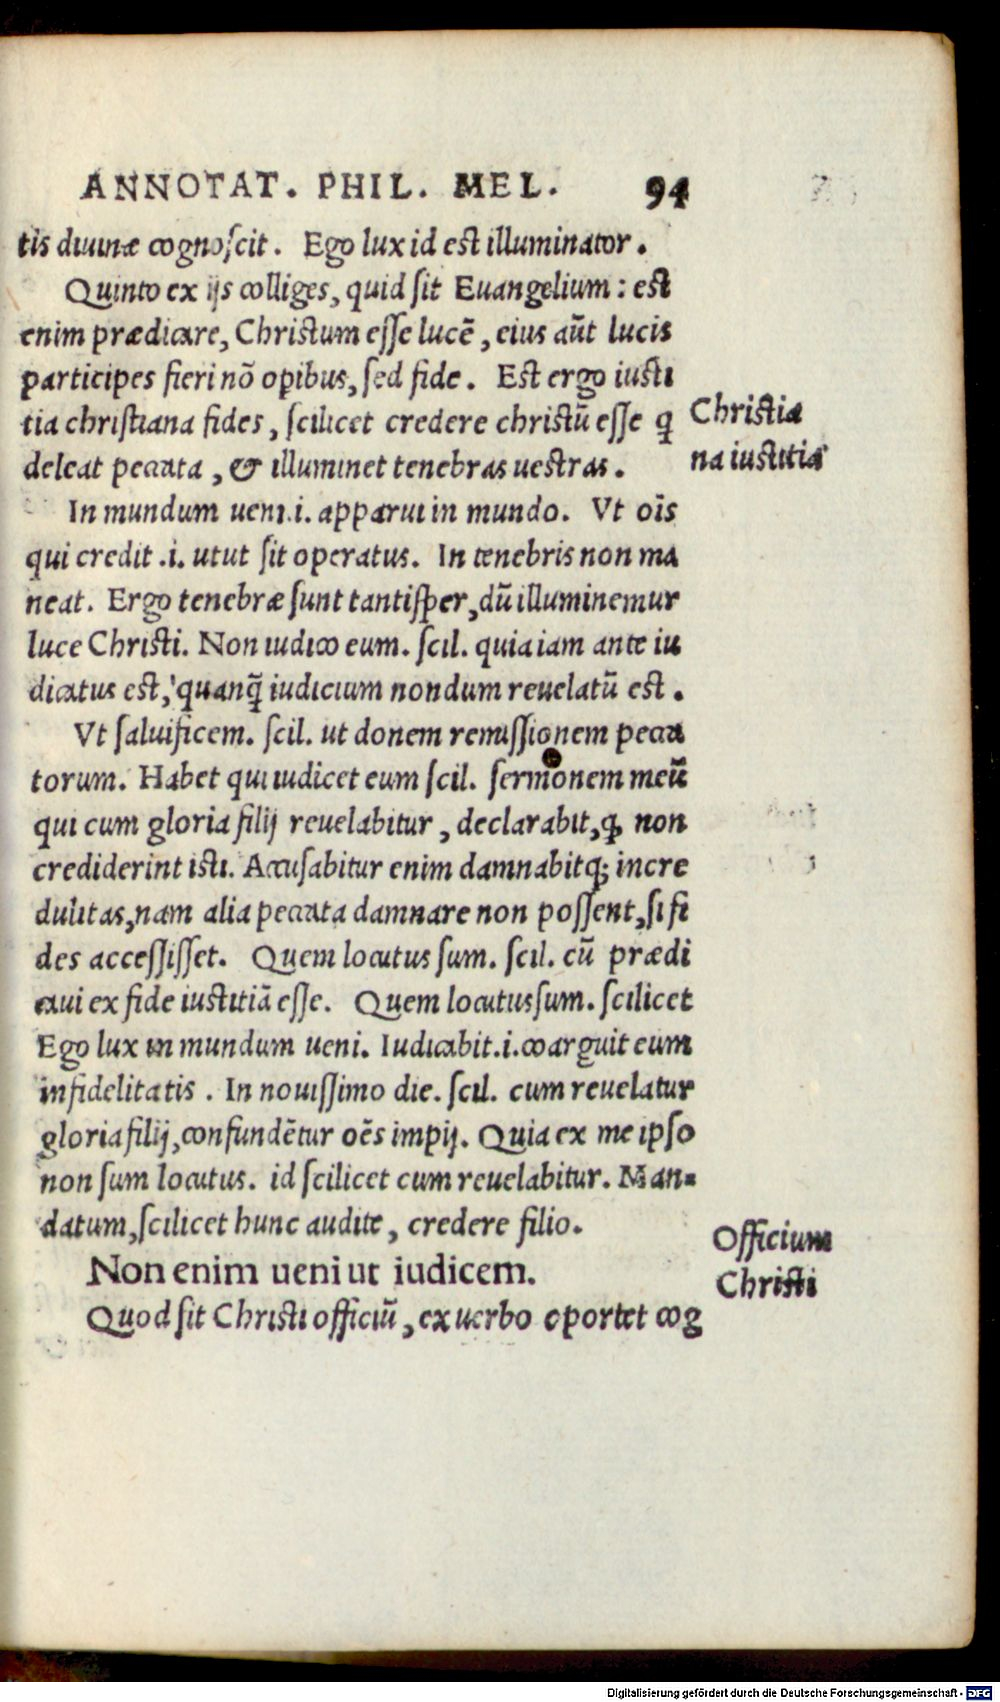 ANNOTAT. PHIL. MEL. 94
tis diuinæ cognoſcit. Ego lux id est illuminator.
Quinto ex ijs colliges, quid ſit Euangelium: est
enim prædicare, Christum eſſe lucē, eius aūt lucis
participes fieri nō opibus, ſed fide. Est ergo iusti
tia christiana fides, ſcilicet credere christū eſſe q
deleat peccata, & illuminet tenebras uestras.
Christia
na iustitia
In mundum ueni.i. apparui in mundo. Vt oīs
qui credit .i. utut ſit operatus. In tenebris non ma
neat. Ergo tenebræ ſunt tantiſper, dū illuminemur
luce Christi. Non iudico eum. ſcil. quia iam ante iu
dicatus est, quanq̃ iudicium nondum reuelatū est.
Vt ſaluificem. ſcil. ut donem remiſſionem pecca
torum. Habet qui iudicet eum ſcil. ſermonem meū
qui cum gloria filij reuelabitur, declarabit, ꝙ non
crediderint isti. Accuſabitur enim damnabitq; incre
dulitas, nam alia peccata damnare non poſſent, ſi fi
des acceſſiſſet. Quem locutus ſum. ſcil. cū prædi
caui ex fide iustitiā eſſe. Quem locutus ſum. ſcilicet
Ego lux in mundum ueni. Iudicabit.i.coarguit eum
infidelitatis. In nouiſſimo die. ſcil. cum reuelatur
gloria filij, confundētur oēs impij. Quia ex me ipſo
non ſum locutus. id ſcilicet cum reuelabitur. Man=
datum, ſcilicet hunc audite, credere filio.
Non enim ueni ut iudicem.
Officium
Christi
Quod ſit Christi officiū, ex uerbo oportet cog
Digitalisierung gefördert durch die Deutsche Forschungsgemeinschaft - DFG